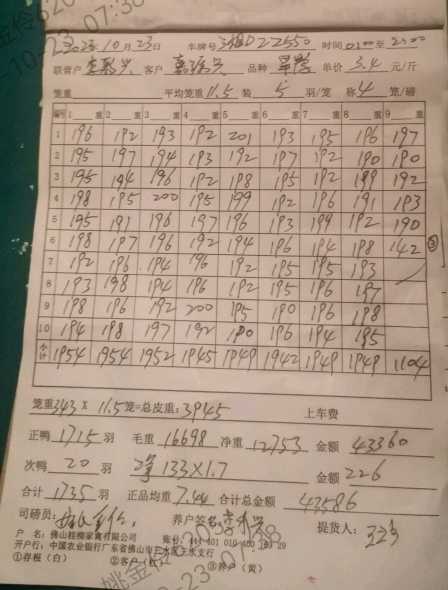 2023年10月23日 车牌号 D22550 时间 至
联营户 客户 品种 单价 3.4 元/斤
笼重 平均笼重 11.5 装 5 羽/笼 称 4 笼/磅
编号 1 重 2 重 3 重 4 重 5 重 6 重 7 重 8 重 9 重
1 196 192 193 192 201 193 195 196 197
2 195 197 194 193 192 197 192 190 190
3 195 194 196 192 198 195 192 199 192
4 198 195 200 195 199 192 196 191 193
5 195 191 196 197 196 193 199 192 190
6 198 197 196 192 194 196 194 198 142
7 192 196 194 196 192 195 195 193
8 193 198 194 196 192 195 196 197
9 198 196 192 200 195 190 196 198
10 194 198 197 192 190 196 194 195
小计 1954 1954 1952 1945 1949 1942 1949 1949 1104
笼重 343 X 11.5 笼=总皮重: 3945 上车费
正鸭 1715 羽 毛重 16698 净重 12753 金额 43360
次鸭 20 羽 净 133×1.7 金额 226
合计 1735 羽 正品均重 7.44 合计总金额 43586
司磅员: 养户签名: 提货人:
户 名: 佛山桂柳家禽有限公司 账号:
开户行: 中国农业银行广东省佛山市三水区三水支行
①存根（白） ②客户（红） ③养户（黄）